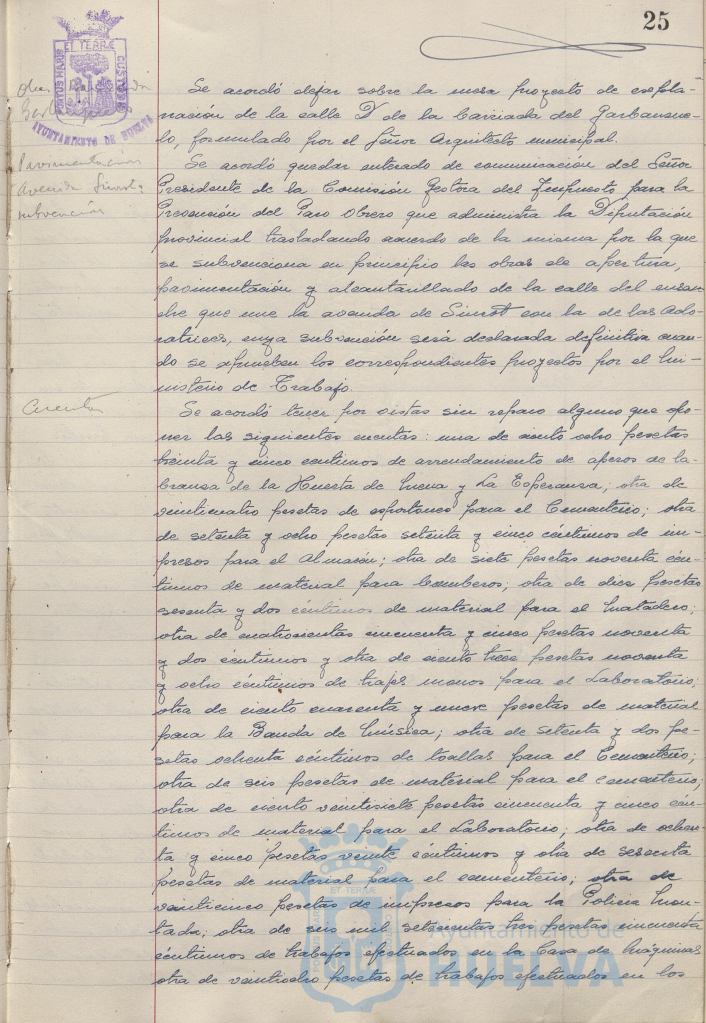 25
PORTUS MARIS
ET TERRE
CUSTODIA
AYUNTAMIENTO DE HUELVA
Se acordó dejar sobre la mesa proyecto de expla-
nación de la calle D de la barriada del Garbanzue-
lo, formulado por el Señor Arquitecto municipal.
Pavimentación
Avenida Siurot,
subvención
Se acordó quedar enterado de comunicación del Señor
Presidente de la Comisión Gestora del Impuesto para la
Prevención del Paro Obrero que administra la Diputación
provincial trasladando acuerdo de la misma por la que
se subvenciona en principio las obras de apertura,
pavimentación y alcantarillado de la calle del ensan-
che que une la avenida de Siurot con la de las Ado-
ratrices, cuya subvención será declarada definitiva cuan-
do se aprueben los correspondientes proyectos por el Mi-
nisterio de Trabajo.
Cuentas
Se acordó tener por vistas sin reparo alguno que opo-
ner las siguientes cuentas: una de ciento ocho pesetas
treinta y cinco centimos de arrendamiento de aperos de la-
branza de la Huerta de Mena y La Esperanza; otra de
veinticuatro pesetas de esportones para el Cementerio; otra
de setenta y ocho pesetas setenta y cinco céntimos de im-
presos para el Almacén; otra de siete pesetas noventa cén-
timos de material para bomberos; otra de diez pesetas
sesenta y dos centimos de material para el Matadero;
otra de cuatrocientas cincuenta y cinco pesetas noventa
y dos céntimos y otra de ciento trece pesetas noventa
y ocho céntimos de trajes monos para el Laboratorio;
otra de ciento cuarenta y nueve pesetas de material
para la Banda de Música; otra de setenta y dos pe-
setas ochenta céntimos de toallas para el Cementerio;
otra de seis pesetas de material para el cementerio;
otra de ciento veintisiete pesetas cincuenta y cinco cén-
timos de material para el Laboratorio; otra de ochen-
ta y cinco pesetas veinte céntimos y otra de sesenta
pesetas de material para el cementerio; otra de
veinticinco pesetas de impresos para la Policia Mon-
tada; otra de seis mil setecientas tres pesetas cincuenta
céntimos de trabajos efectuados en la Casa de Máquinas
otra de veintiocho pesetas de trabajos efectuados en los
Ayuntamiento de
HUELVA